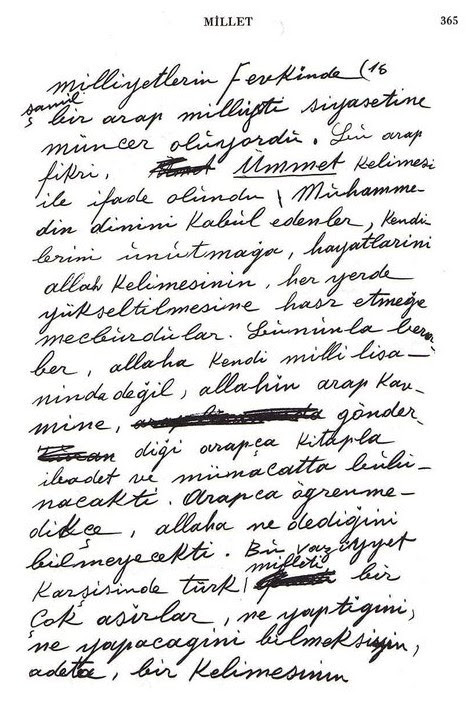 MİLLET 365
milliyetlerin fevkinde (16
şamil
bir arap milliyeti siyasetine
müncer oluyordu. Bu arap
fikri, Ümmet kelimesi
ile ifade olundu \ Muhamme-
din dinini kabul edenler, kendi-
lerini unutmağa, hayatlarini
allah kelimesinin, her yerde
yükseltilmesine hasr etmeğe
mecburdular. Bununla bera-
ber, allaha kendi milli lisa-
ninda değil, allahin arap kav-
mine, gönder-
diği arapça kitapla
ibadet ve münacatta bulu-
nacakti. Arapca öğrenme-
dikçe, allaha ne dediğini
bilmeyecekti. Bu vaziyyet
karşisinde türk milleti bir
çok asirlar, ne yaptiğini,
ne yapacağini bilmeksizin,
adeta, bir kelimesinin